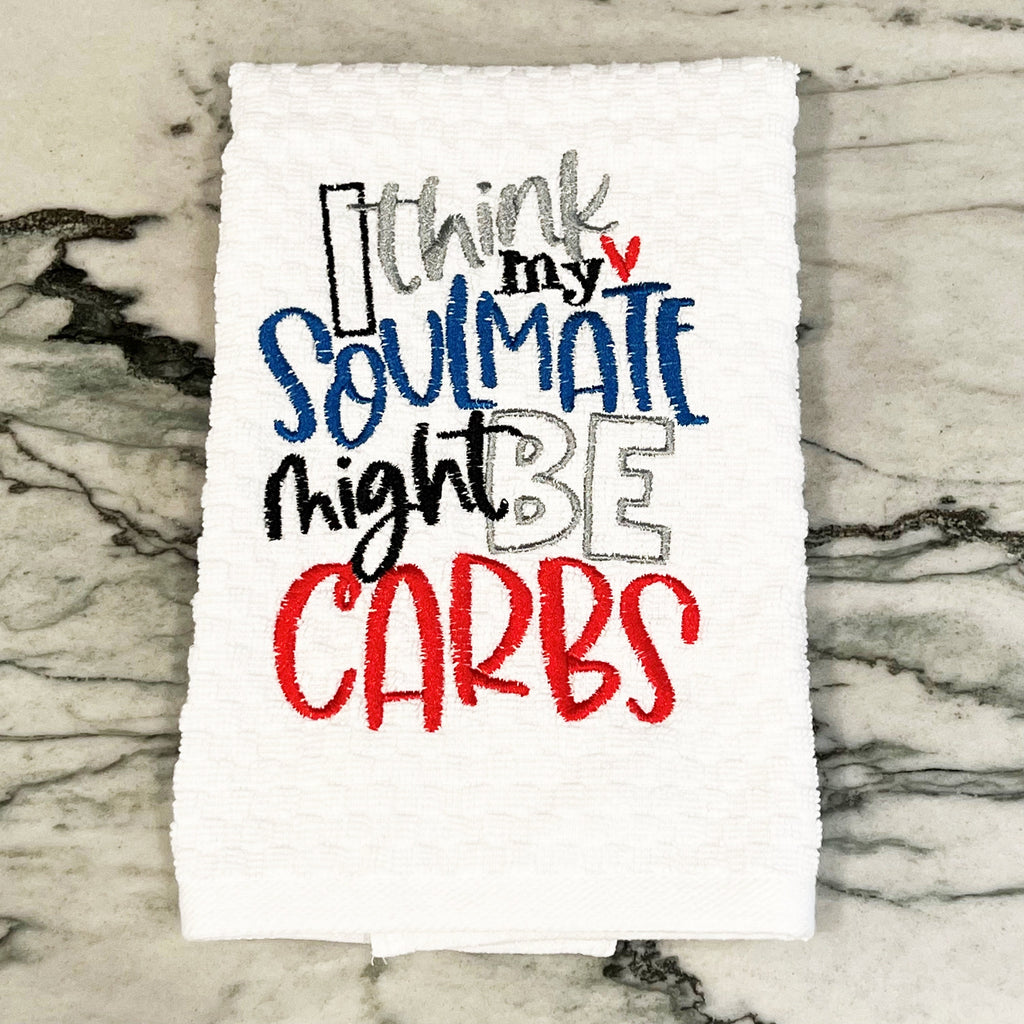 I think
my
SOULMATE
might BE
CARBS